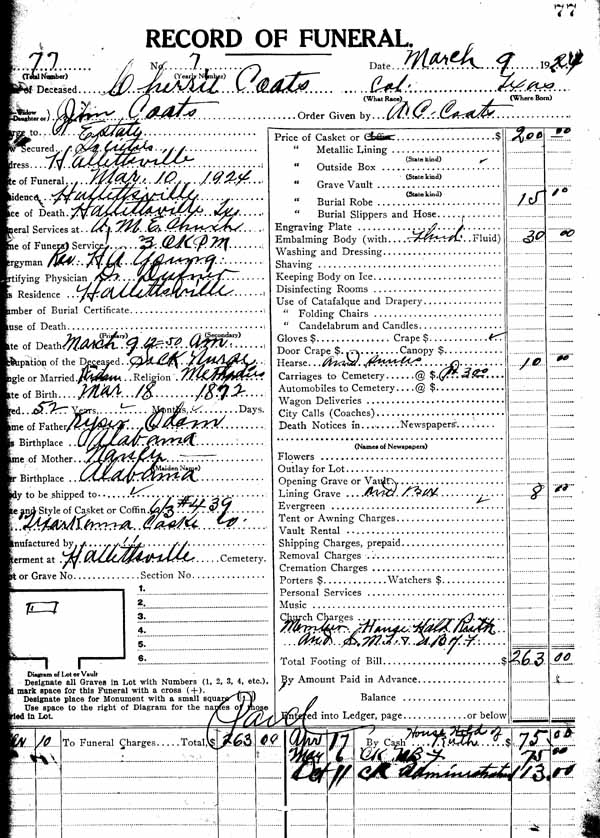 77
RECORD OF FUNERAL.
77 No. 7 Date March 9 1924
(Total Number) (Yearly Number)
of Deceased Coats Col. Texas
(What Race) (Where Born)
Widow
Daughter or) Jim Coats Order Given by A. C. Coats
arge to Estate
w Secured
dress Hallettsville
te of Funeral Mar. 10 1924
sidence Hallettsville
ce of Death Hallettsville Tex
neral Services at A. M. E. Church
me of Funeral Service 3 CK P M
ergyman Rev. H A Young
ertifying Physician Dr
s Residence Hallettsville
umber of Burial Certificate
use of Death
(Primary) (Secondary)
te of Death March 9 12-50 Am
cupation of the Deceased Sick Nurse
ngle or Married Widow Religion Methodist
te of Birth Mar 18 1872
ged 52 Years Months Days.
me of Father Odom
is Birthplace Alabama
me of Mother Nancy
(Maiden Name)
er Birthplace Alabama
dy to be shipped to
ze and Style of Casket or Coffin 6/3 # 439
Texarkanna Casket Co.
anufactured by
terment at Hallettsville Cemetery.
t or Grave No. Section No.
1.
2.
3.
4.
5.
6.
Diagram of Lot or Vault
Designate all Graves in Lot with Numbers (1, 2, 3, 4, etc.),
d mark space for this Funeral with a cross (+).
Designate place for Monument with a small square (□)
Use space to the right of Diagram for the names of those
ried in Lot.
Paid
Price of Casket or Coffin $ 200 00
" Metallic Lining
(State kind)
" Outside Box
(State kind)
" Grave Vault
(State kind)
" Burial Robe 15 00
" Burial Slippers and Hose
Engraving Plate
Embalming Body (with Fluid Fluid) 30 00
Washing and Dressing
Shaving
Keeping Body on Ice
Disinfecting Rooms
Use of Catafalque and Drapery
" Folding Chairs
" Candelabrum and Candles
Gloves $ Crape $
Door Crape $ Canopy $
Hearse and Services 10 00
Carriages to Cemetery @ $
Automobiles to Cemetery @ $
Wagon Deliveries
City Calls (Coaches)
Death Notices in Newspapers
(Names of Newspapers)
Flowers
Outlay for Lot
Opening Grave or Vault
Lining Grave and Box 8 00
Evergreen
Tent or Awning Charges
Vault Rental
Shipping Charges, prepaid
Removal Charges
Cremation Charges
Porters $ Watchers $
Personal Services
Music
Church Charges
Member House Hold Ruth
and
Total Footing of Bill $ 263 00
By Amount Paid in Advance
Balance
Entered into Ledger, page or below
10 To Funeral Charges Total, $ 263 00 Apr 17 By Cash House Hold of Ruth $ 75 00
May 6 CK 75 00
Oct 11 CK Administrator 113.00